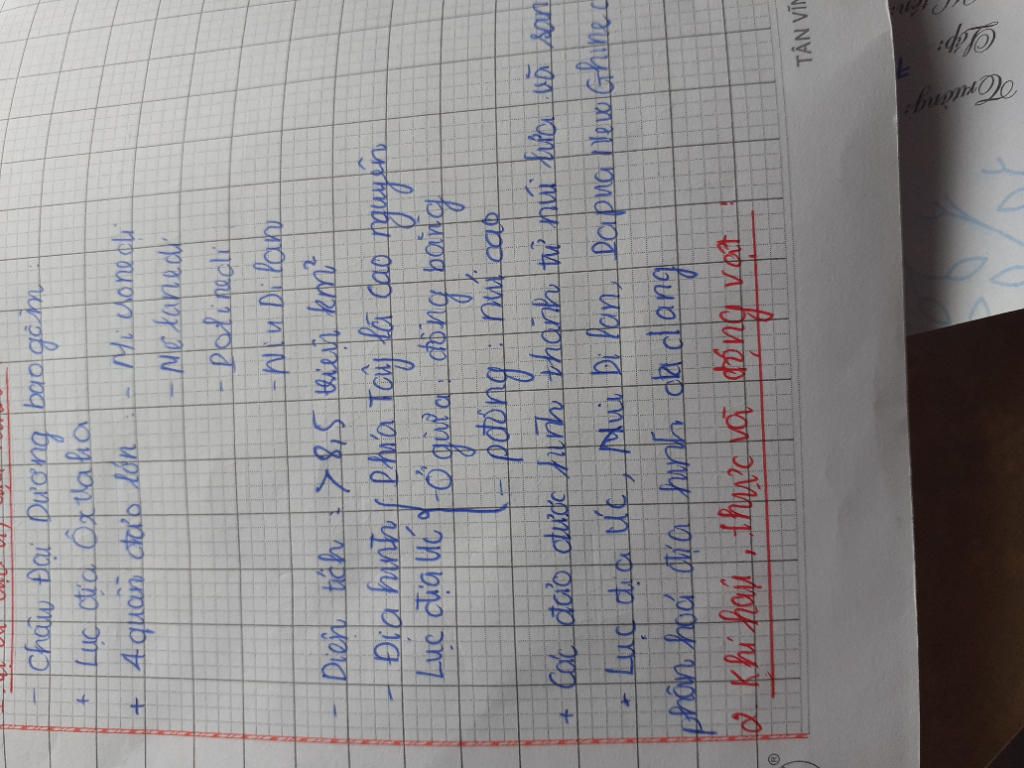 - Châu Đại Dương bao gồm
+ Lục địa Ôxtlaylia
+ 4 quần đảo lớn: - Mi cronedi
- Mêlanedi
- Polinedi
- Niu Di lan
- Diện tích: > 8,5 triệu km²
- Địa hình { Phía Tây là cao nguyên
Lục địa Úc - Ở giữa: đồng bằng
- pđông: núi cao
+ Các đảo được hình thành từ núi lửa và san
+ Lục địa Úc, Niui Di lan, papua New Ghine
phân hoá địa hình đa dạng
2 Khí hậu, thực và động vật:
TÂN VĨ
Trường:
Lớp: 7